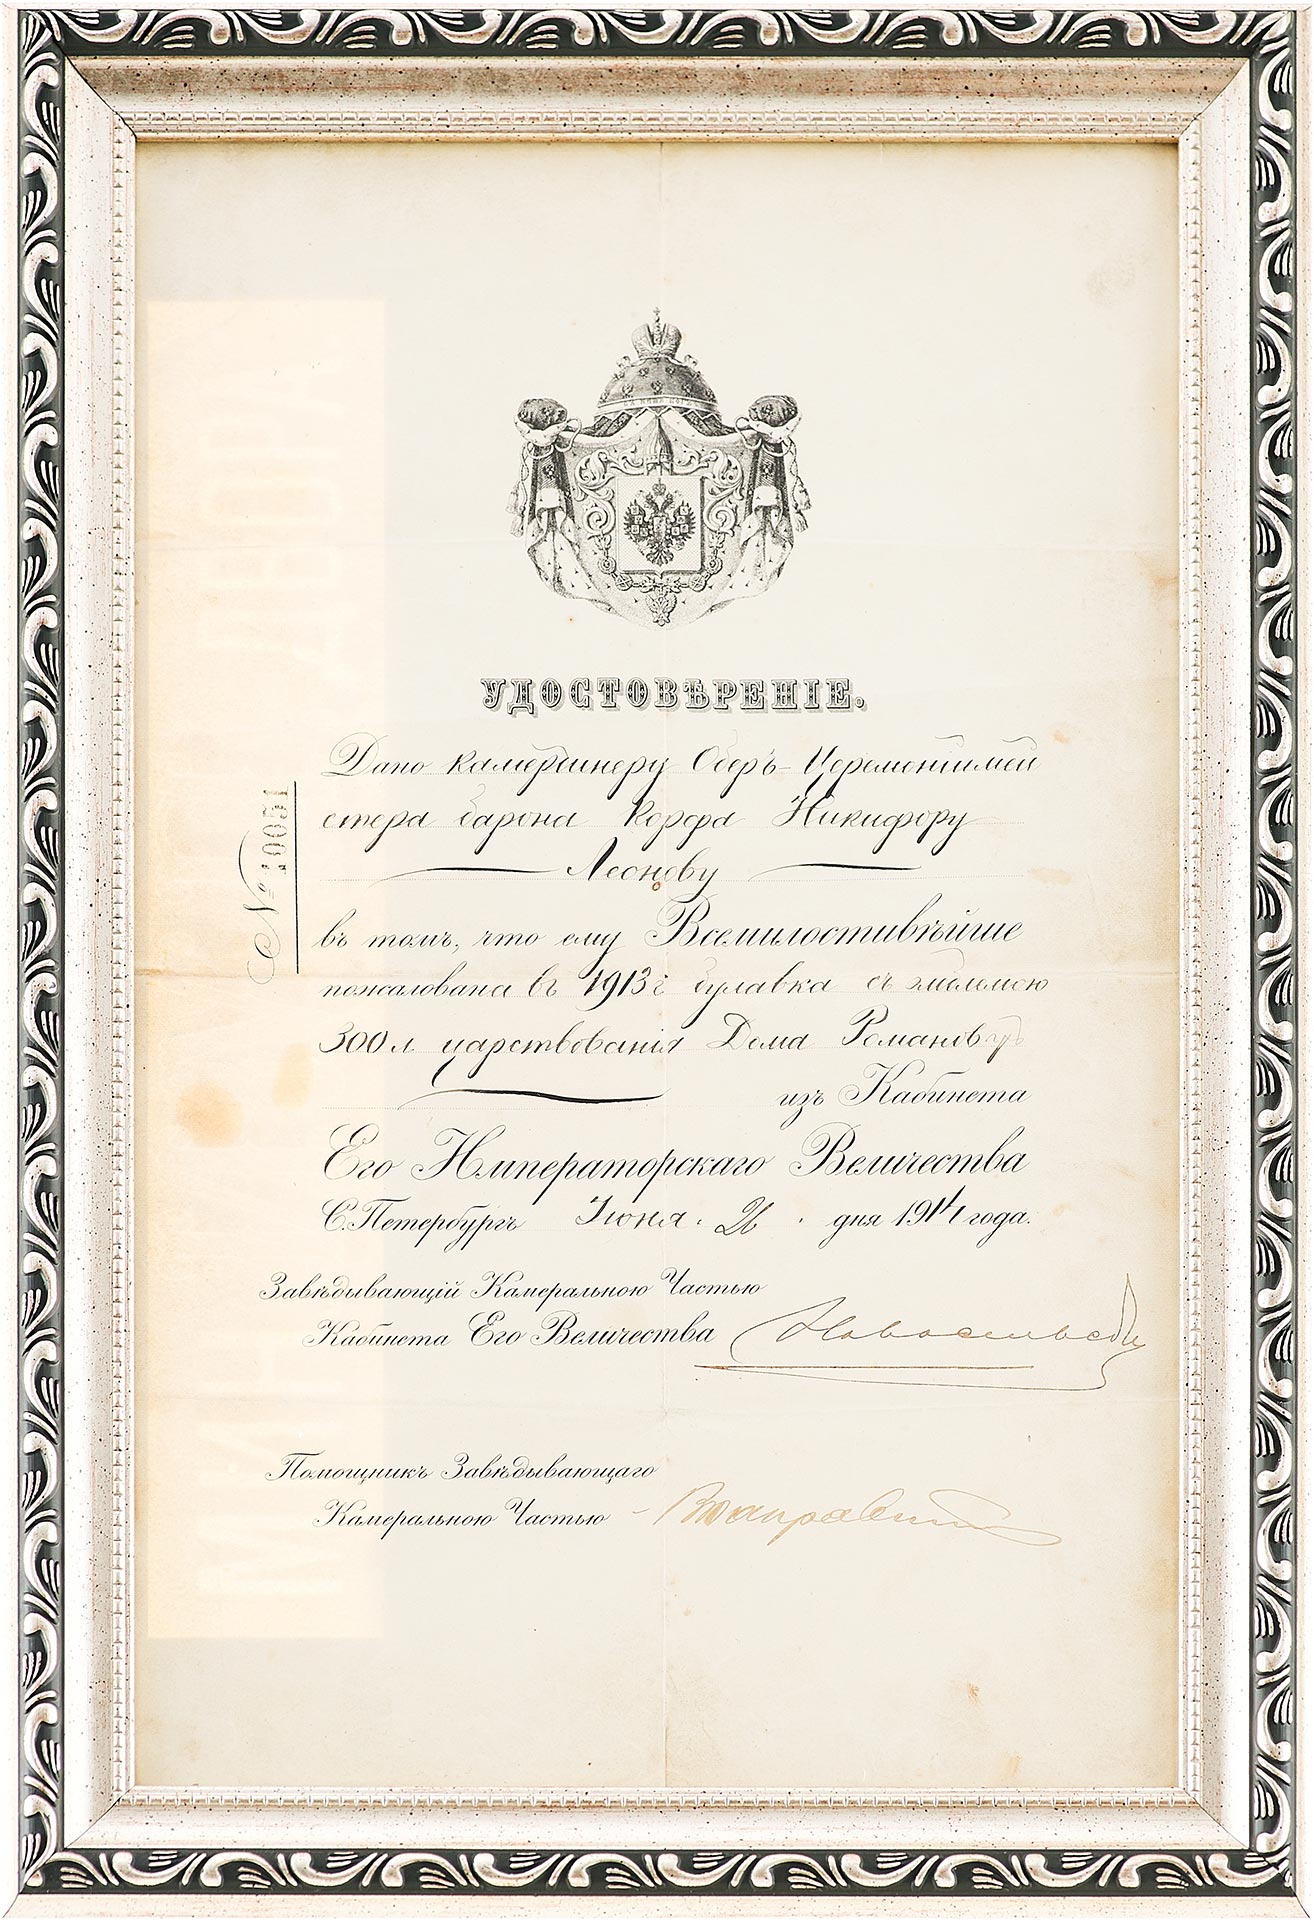 СЪ НАМИ БОГЪ
УДОСТОВѢРЕНІЕ.
Дано камердинеру Оберъ-Церемоніймей
стера барона Корфа Никифору
Леонову
№ 10051
въ томъ, что ему Всемилостивѣйше
пожалована въ 1913 г булавка съ эмблемою
300 л царствованія Дома Романовыхъ
изъ Кабинета
Его Императорскаго Величества
С.Петербургъ Іюня 26 дня 1914 года.
Завѣдывающій Камеральною Частью
Кабинета Его Величества
Помощникъ Завѣдывающаго
Камеральною Частью